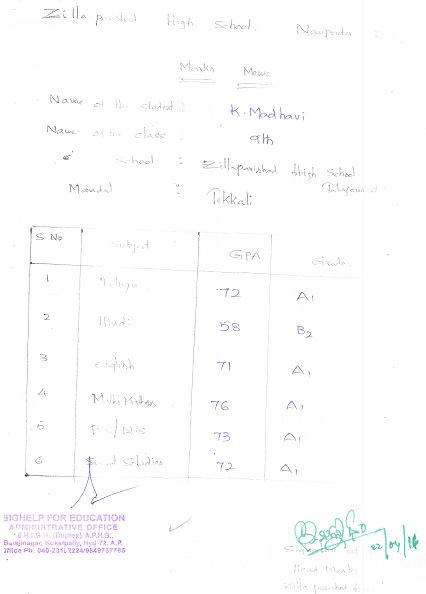 Zilla parishad High School, Naupada
Marks Memo
Name of the student : K. Madhavi
Name of the class : 9th
School : Zillaparishad High School
Mandal : Tekkali
S.No Subject GPA Grade
1 Telugu 72 A1
2 Hindi 58 B2
3 english 71 A1
4 76 A1
5 P.S/N.S 73 A1
6 Social Studies 72 A1
BIGHELP FOR EDUCATION
ADMINISTRATIVE OFFICE
H.I.G.H. (Duplex), A.P.H.B.,
Balajinagar, Kukatpally, Hyd-72. A.P.
Office Ph. 040-231
22/04/
Head
Zilla parishad